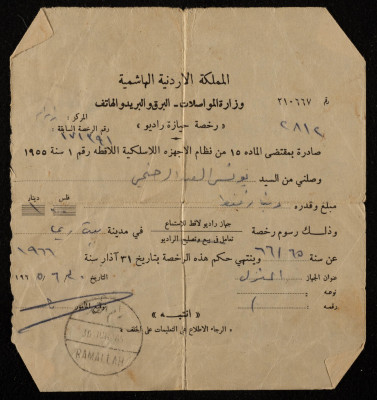 المملكة الاردنية الهاشمية
وزارة المواصلات - البرق والبريد والهاتف
رقم ٢١٠٦٦٧
المركز :
« رخصة حيازة راديو »
٢٨١٢
رقم الرخصة السابقة :
١٧١٣٩١
صادرة بمقتضى الماده ١٥ من نظام الاجهزه اللاسلكية اللاقطه رقم ١ سنة ١٩٥٥
وصلني من السيد يونس عبد الرحمن
فلس دينار
مبلغ وقدره دينار فقط
وذلك رسوم رخصة جهاز راديو لاقط للاستماع
تعامل في بيع وتصليح الراديو
في مدينة بيت ريما
عن سنة ٦٥/٦٦ وينتهي حكم هذه الرخصة بتاريخ ٣١ آذار سنة ١٩٦٦
عنوان الجهاز المنزل
التاريخ
نوعه
رقمه
توقيع المأمور
« انتبه »
- الرجاء الاطلاع على التعليمات على الخلف -
RAMALLAH